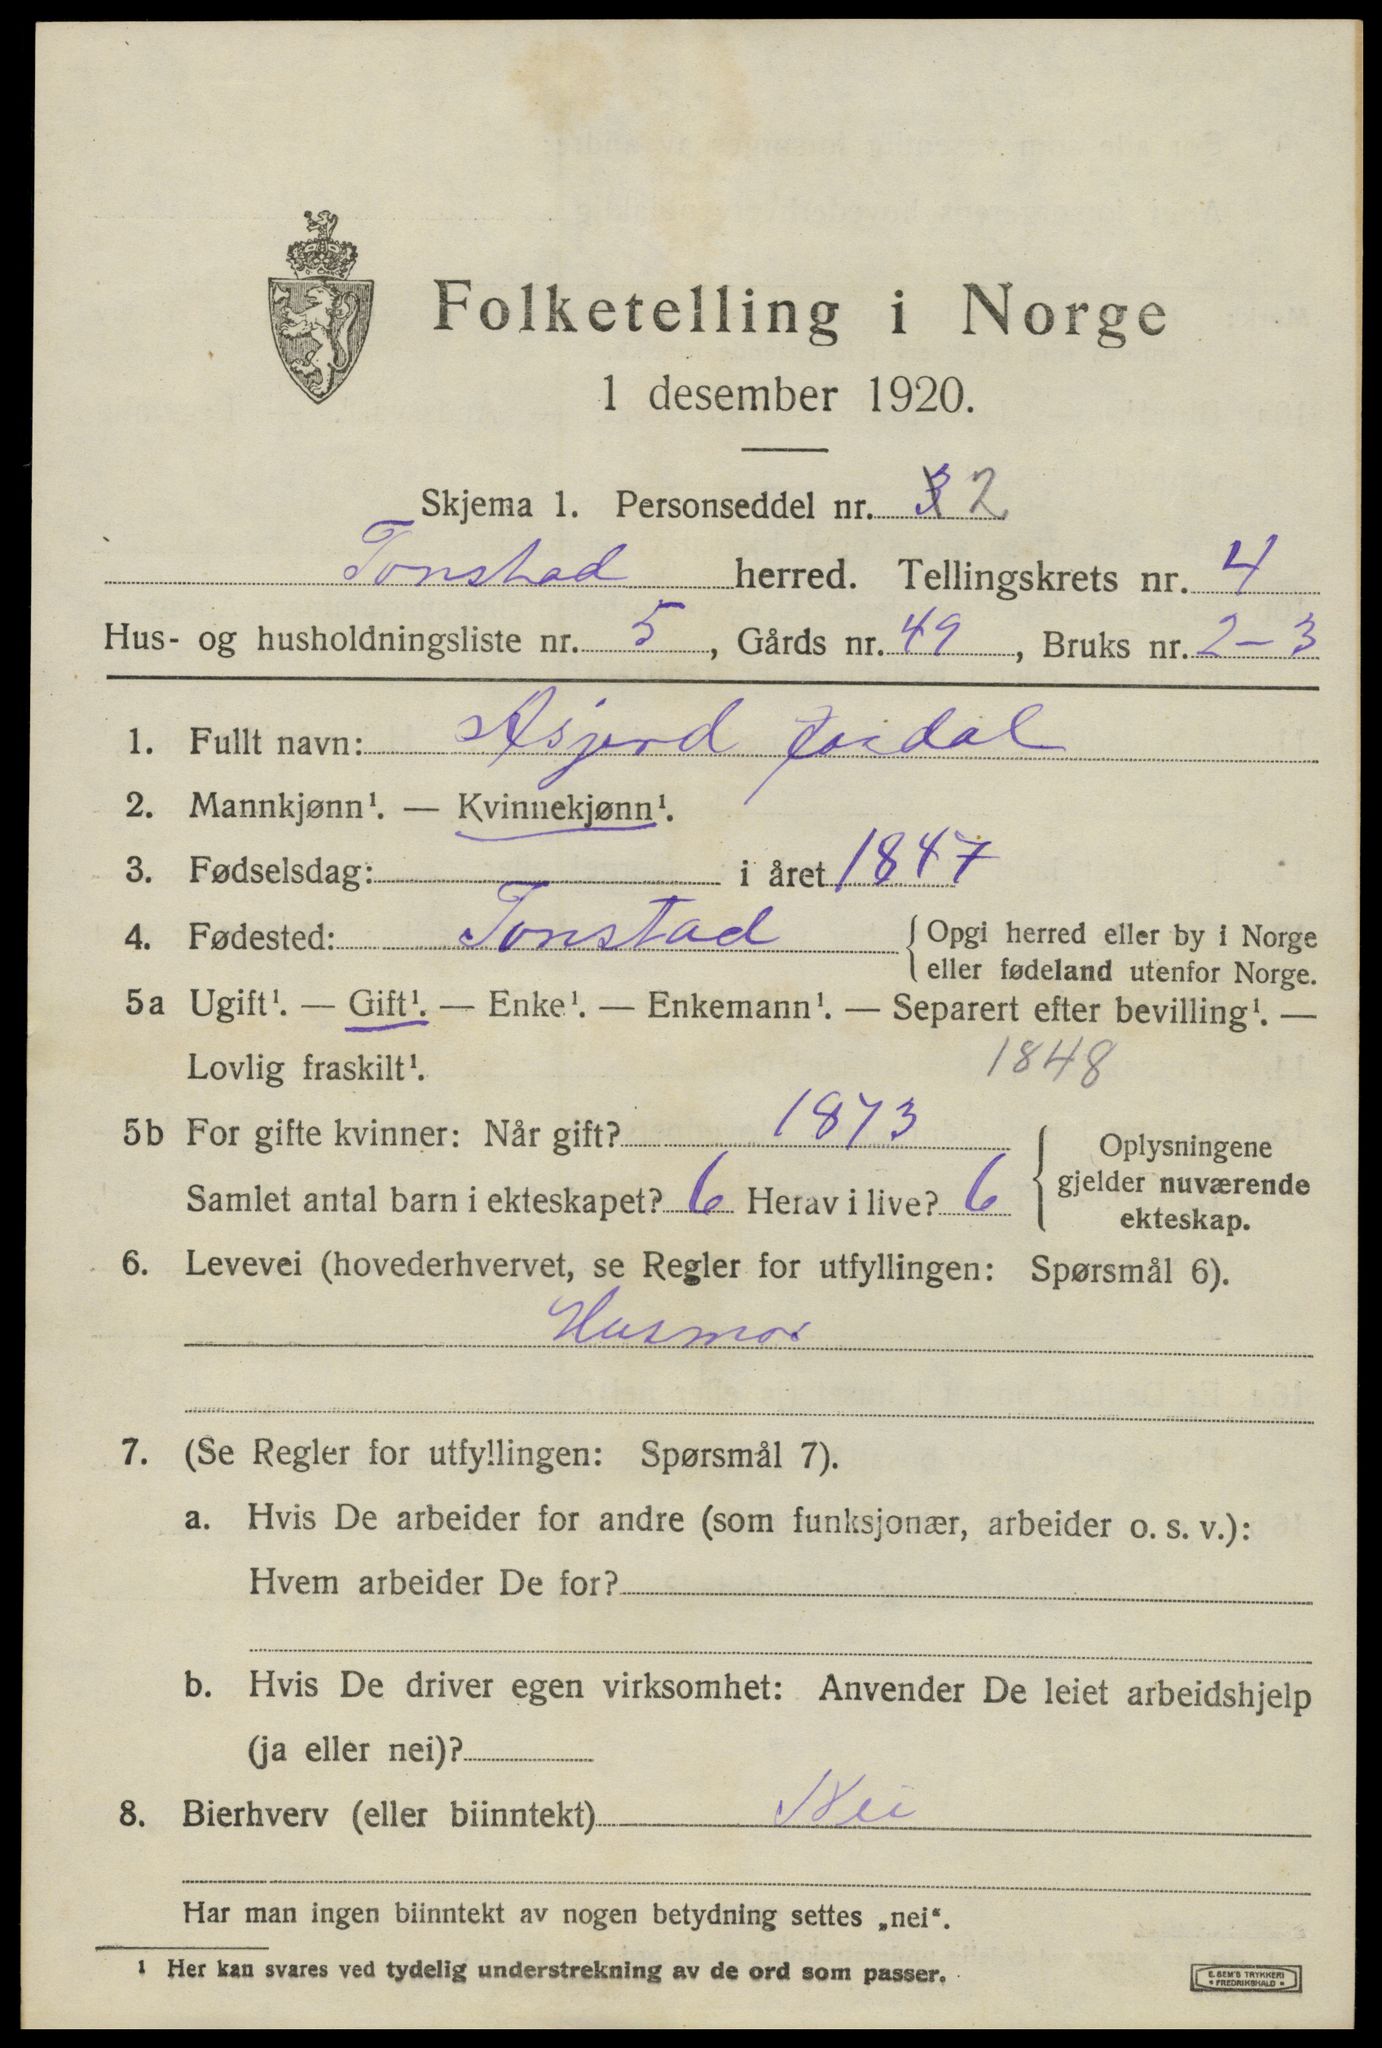 Folketelling i Norge
1 desember 1920.
Skjema 1. Personseddel nr. 3 2
Tonstad herred. Tellingskrets nr. 4
Hus- og husholdningsliste nr. 5, Gårds nr. 49, Bruks nr. 2-3
1. Fullt navn: Asjerd
2. Mannkjønn¹. — Kvinnekjønn¹.
3. Fødselsdag: i året 1847
4. Fødested: Tonstad { Opgi herred eller by i Norge
eller fødeland utenfor Norge.
5a Ugift¹. — Gift¹. — Enke¹. — Enkemann¹. — Separert efter bevilling¹. —
Lovlig fraskilt¹. 1848
5b For gifte kvinner: Når gift? 1873
Samlet antal barn i ekteskapet? 6 Herav i live? 6
{ Oplysningene
gjelder nuværende
ekteskap.
6. Levevei (hovederhvervet, se Regler for utfyllingen: Spørsmål 6).
Husmor
7. (Se Regler for utfyllingen: Spørsmål 7).
a. Hvis De arbeider for andre (som funksjonær, arbeider o. s. v.):
Hvem arbeider De for?
b. Hvis De driver egen virksomhet: Anvender De leiet arbeidshjelp
(ja eller nei)?
8. Bierhverv (eller biinntekt) Nei
Har man ingen biinntekt av nogen betydning settes „nei“.
¹ Her kan svares ved tydelig understrekning av de ord som passer.
E. SEM'S TRYKKERI
* FREDRIKSHALD *